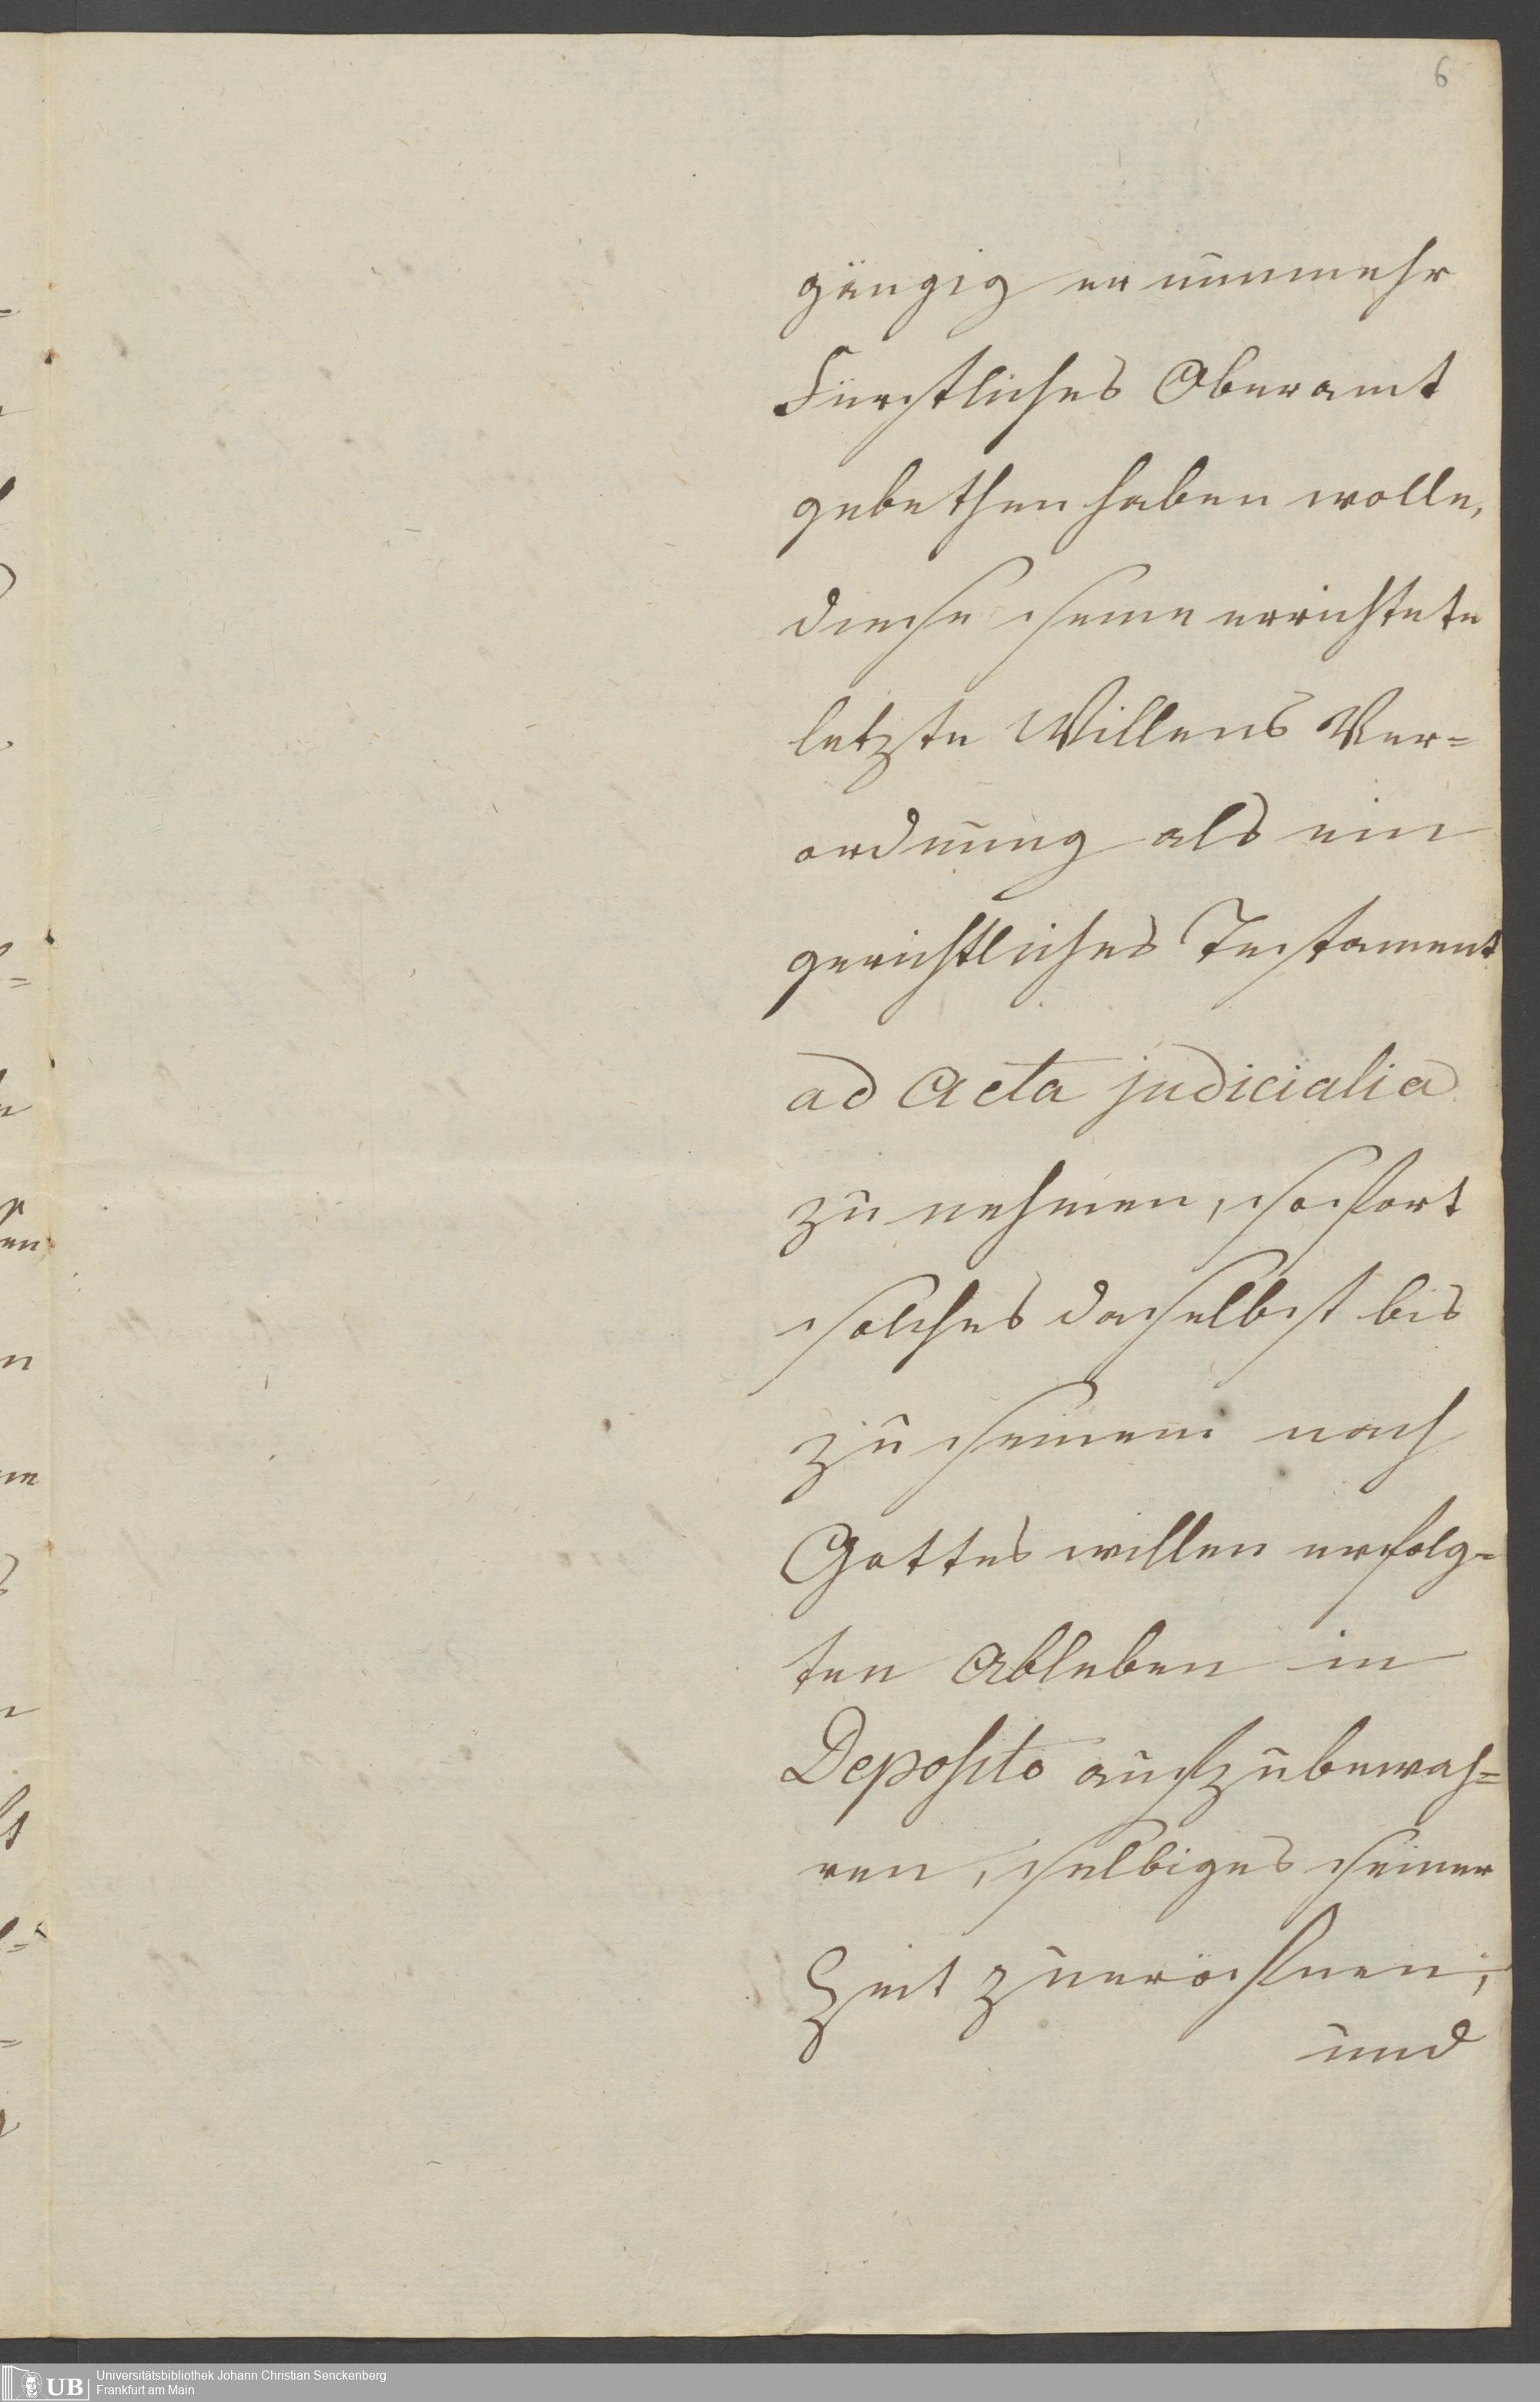 6
gängig er nunmehr
Fürstliches Oberamt
gebethen haben wolle,
diese seine errichtete
letzte Willens Ver=
ordnung als ein
gerichtliches Testament
ad Acta judicialia
zu nehmen, sofort
solches daselbst bis
zu seinem nach
Gottes willen erfolg=
ten Ableben in
Deposito aufzubewah=
ren, selbiges seiner
Zeit zueröfnen;
und
UB Universitätsbibliothek Johann Christian Senckenberg
Frankfurt am Main